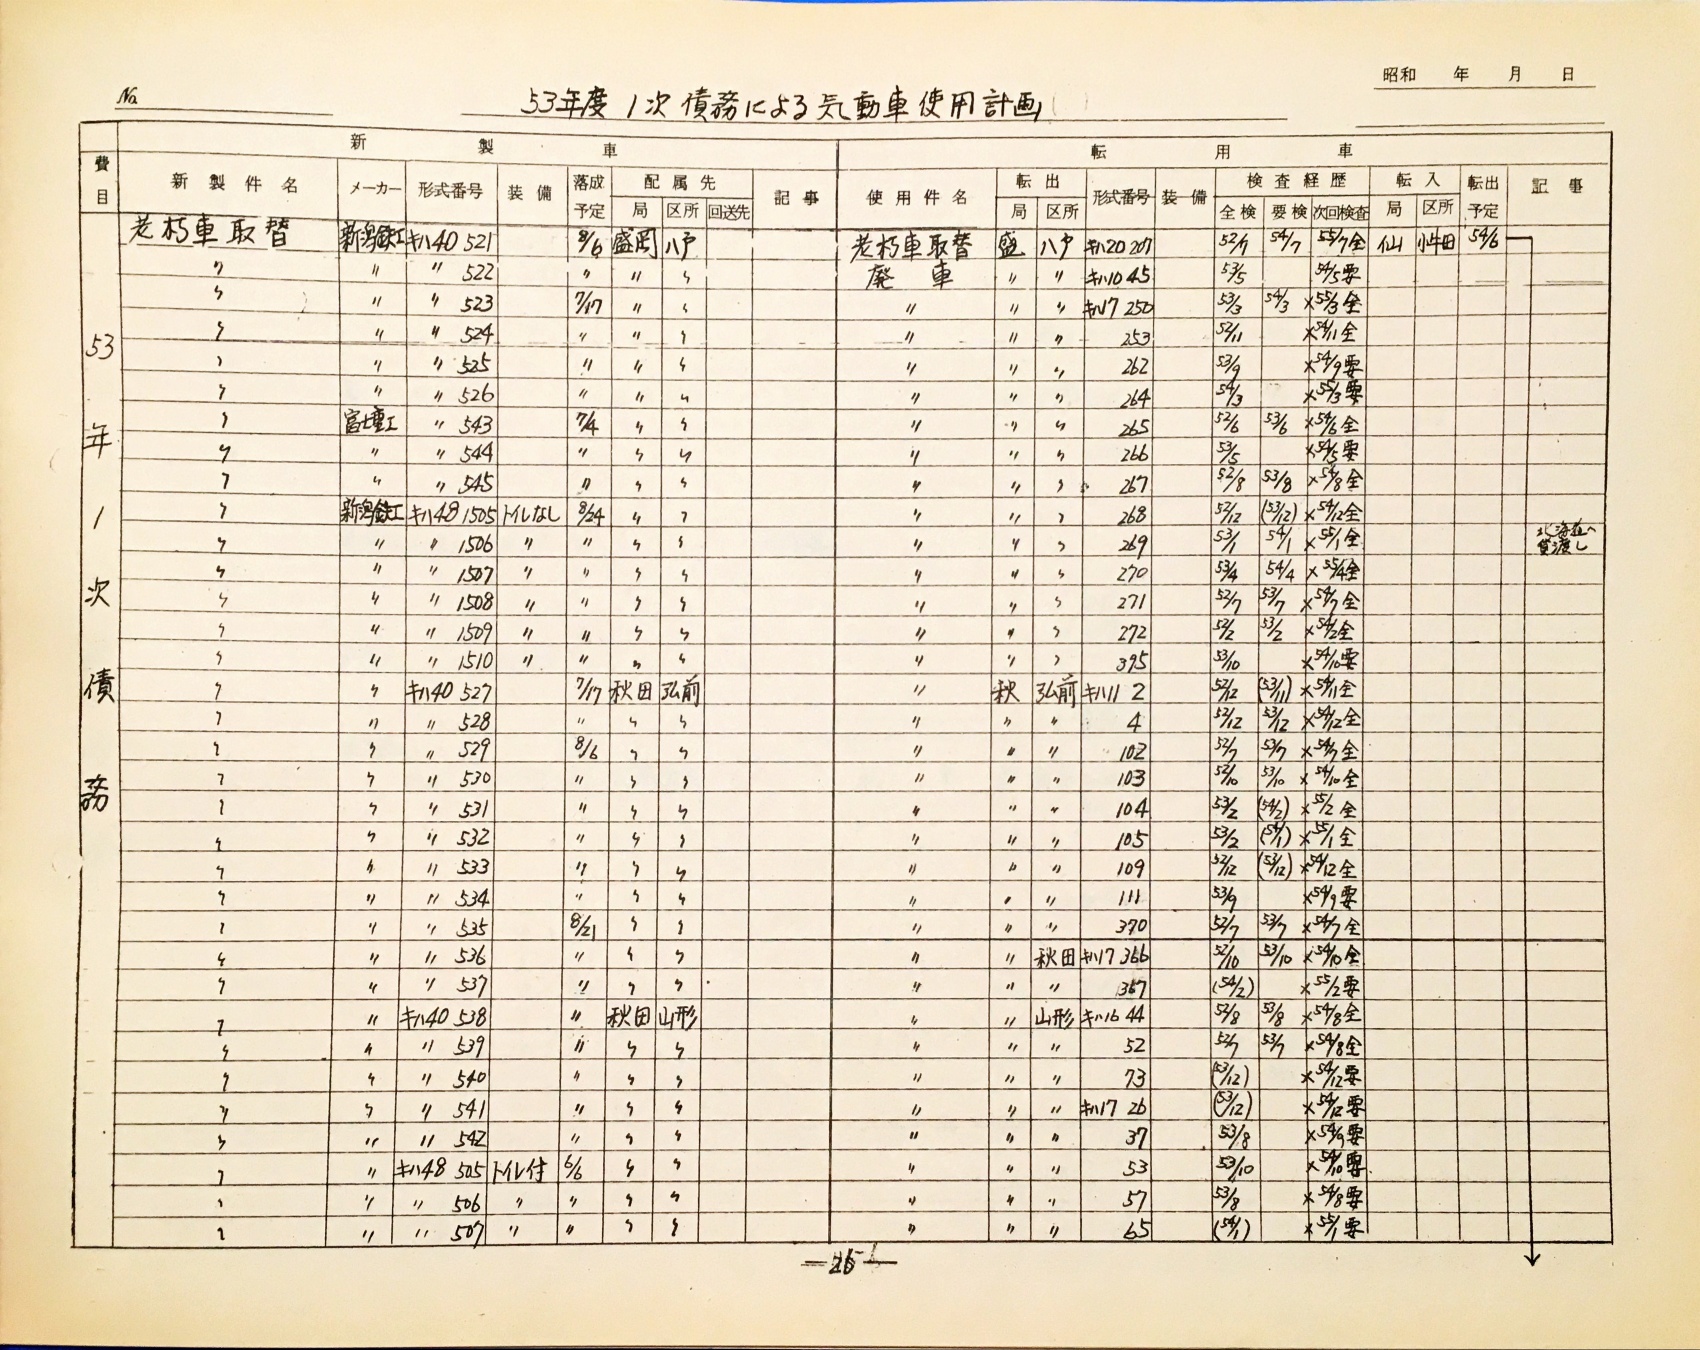 昭和 年 月 日
No.
53年度 1次債務による気動車使用計画
費目 新製車 転用車
新製件名 メーカー 形式番号 装備 落成予定 配属先 記事 使用件名 転出 形式番号 装備 検査経歴 転入 転出予定 記事
局 区所 回送先 局 区所 全検 要検 次回検査 局 区所
53年1次債務
老朽車取替 新潟鉄工 キハ40 521 8/6 盛岡 八戸 老朽車取替 盛 八戸 キハ20 207 52/7 54/7 55/7全 仙 小牛田 54/6
〃 〃 〃 522 〃 〃 〃 廃車 〃 〃 キハ10 45 53/5 54/5要
〃 〃 〃 523 7/17 〃 〃 〃 〃 〃 キハ17 250 53/3 54/3 ×55/3全
〃 〃 〃 524 〃 〃 〃 〃 〃 〃 253 52/11 ×54/11全
〃 〃 〃 525 〃 〃 〃 〃 〃 〃 262 53/9 ×54/9要
〃 〃 〃 526 〃 〃 〃 〃 〃 〃 264 54/3 ×55/3要
〃 富士重工 〃 543 7/4 〃 〃 〃 〃 〃 265 52/6 53/6 ×54/6全
〃 〃 〃 544 〃 〃 〃 〃 〃 〃 266 53/5 ×54/5要
〃 〃 〃 545 〃 〃 〃 〃 〃 〃 267 52/8 53/8 ×54/8全
〃 新潟鉄工 キハ48 1505 トイレなし 8/24 〃 〃 〃 〃 〃 268 52/12 (53/12) ×54/12全
〃 〃 〃 1506 〃 〃 〃 〃 〃 〃 〃 269 53/1 54/1 ×55/1全 北海道へ貸渡し
〃 〃 〃 1507 〃 〃 〃 〃 〃 〃 〃 270 53/4 54/4 ×55/4全
〃 〃 〃 1508 〃 〃 〃 〃 〃 〃 〃 271 52/7 53/7 ×54/7全
〃 〃 〃 1509 〃 〃 〃 〃 〃 〃 〃 272 52/2 53/2 ×54/2全
〃 〃 〃 1510 〃 〃 〃 〃 〃 〃 〃 395 53/10 ×54/10要
〃 〃 キハ40 527 7/17 秋田 弘前 〃 秋 弘前 キハ11 2 52/12 (53/11) ×54/11全
〃 〃 〃 528 〃 〃 〃 〃 〃 〃 4 52/12 53/12 ×54/12全
〃 〃 〃 529 8/6 〃 〃 〃 〃 〃 102 52/7 53/7 ×54/7全
〃 〃 〃 530 〃 〃 〃 〃 〃 〃 103 52/10 53/10 ×54/10全
〃 〃 〃 531 〃 〃 〃 〃 〃 〃 104 53/2 (54/2) ×55/2全
〃 〃 〃 532 〃 〃 〃 〃 〃 〃 105 53/2 (54/1) ×55/1全
〃 〃 〃 533 〃 〃 〃 〃 〃 〃 109 52/12 (53/12) ×54/12全
〃 〃 〃 534 〃 〃 〃 〃 〃 〃 111 53/9 ×54/9要
〃 〃 〃 535 8/21 〃 〃 〃 〃 〃 370 52/7 53/7 ×54/7全
〃 〃 〃 536 〃 〃 〃 〃 〃 秋田 キハ17 366 52/10 53/10 ×54/10全
〃 〃 〃 537 〃 〃 〃 〃 〃 〃 367 (54/2) ×55/2要
〃 〃 キハ40 538 〃 秋田 山形 〃 〃 山形 キハ16 44 52/8 53/8 ×54/8全
〃 〃 〃 539 〃 〃 〃 〃 〃 〃 52 52/7 53/7 ×54/8全
〃 〃 〃 540 〃 〃 〃 〃 〃 〃 73 (53/12) ×54/12要
〃 〃 〃 541 〃 〃 〃 〃 〃 〃 キハ17 26 (53/12) ×54/12要
〃 〃 〃 542 〃 〃 〃 〃 〃 〃 37 53/8 ×54/9要
〃 〃 キハ48 505 トイレ付 6/6 〃 〃 〃 〃 〃 53 53/10 ×54/10要
〃 〃 〃 506 〃 〃 〃 〃 〃 〃 〃 57 53/8 ×54/8要
〃 〃 〃 507 〃 〃 〃 〃 〃 〃 〃 65 (54/1) ×55/1要